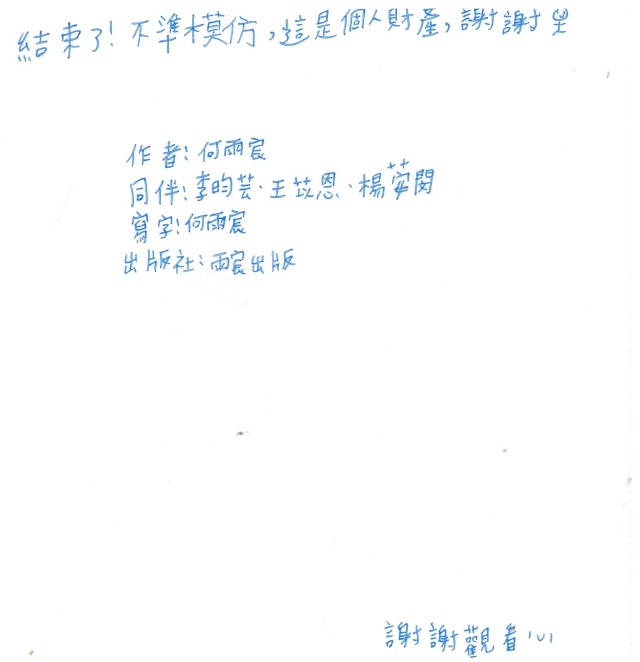 結束了!不準模仿,這是個人財產,謝謝
作者:何雨宸
同伴:李昀芸、王苡恩、楊
寫字:何雨宸
出版社:雨宸出版
謝謝觀看